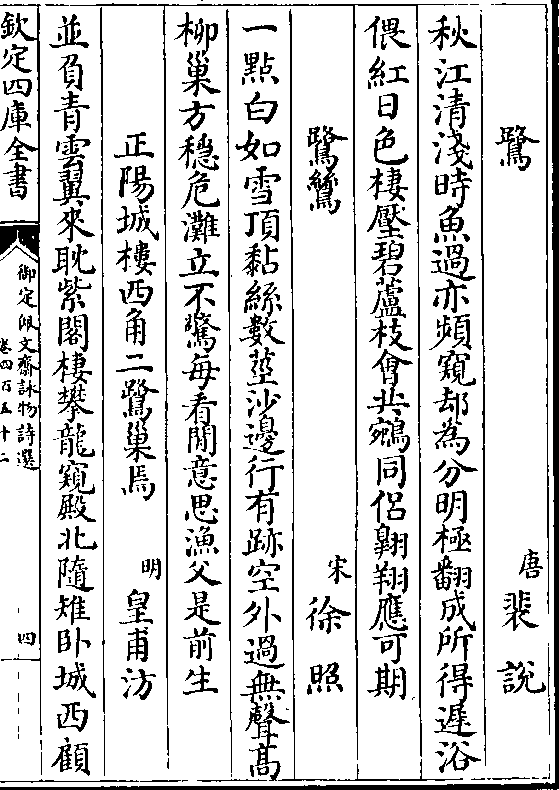 鷺
唐裴說
秋江清淺時魚過亦頻窺却為分明極翻成所得遲浴
偎紅日色棲壓碧蘆枝會共鵷同侶翺翔應可期
鷺鷥
宋徐照
一點白如雪頂黏絲數莖沙邊行有跡空外過無聲髙
柳巢方穩危灘立不驚每看閒意思漁父是前生
正陽城樓西角二鷺巢焉
明皇甫汸
並負青雲翼來耽紫閣棲攀龍窺殿北隨雉卧城西顧
欽定四庫全書
御定佩文齋詠物詩選
卷四百五十二
四